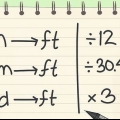 n → ft ÷ 12
m → ft ÷ 30.4
d → ft × 3